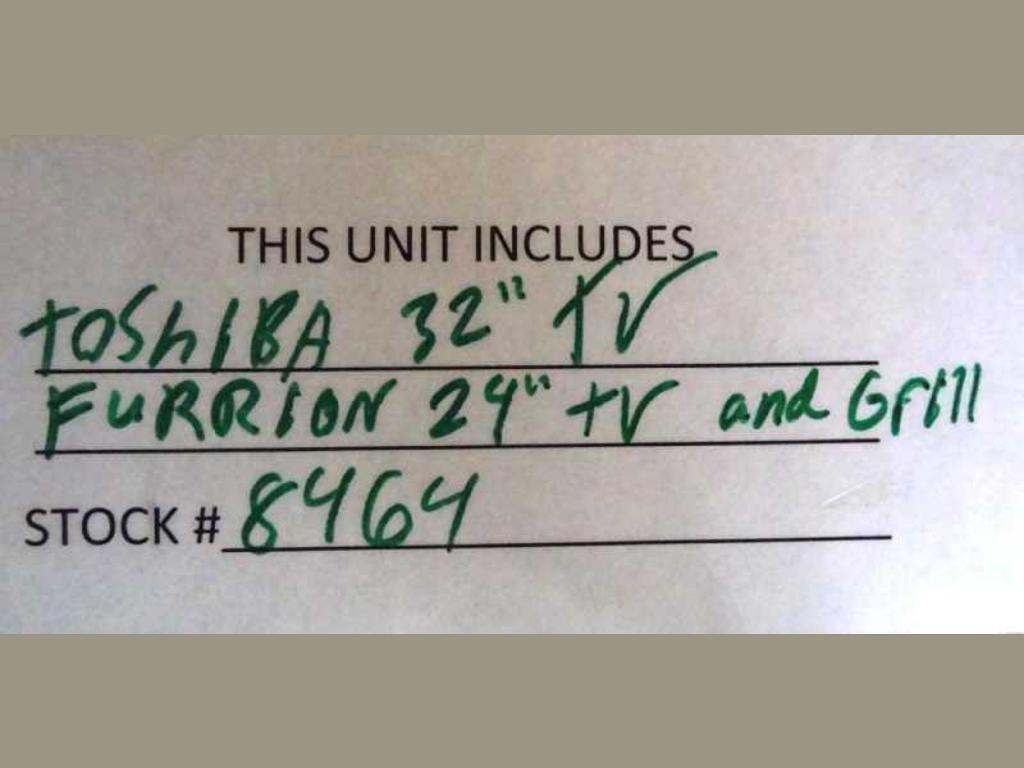 THIS UNIT INCLUDES
TOShIBA 32" TV
FURRION 24" TV and Grill
STOCK # 8464